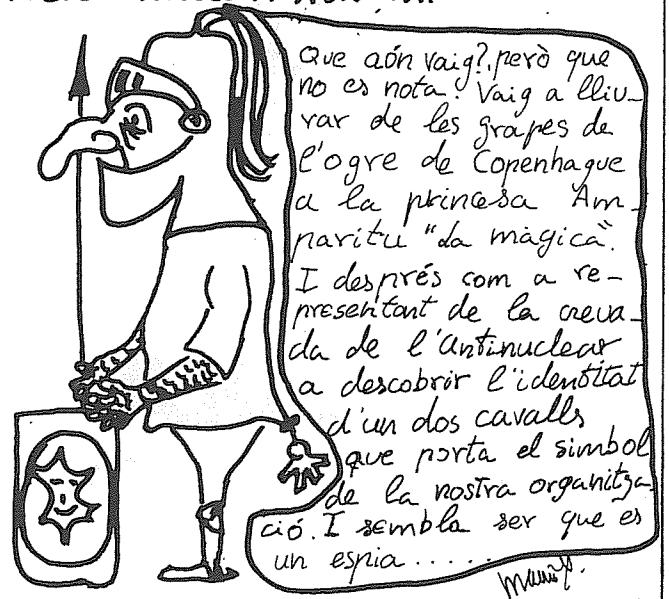 Que aón vaig?, però que
no es nota? Vaig a lliu-
rar de les grapes de
l'ogre de Copenhague
a la princesa Am-
paritu "da màgica".
I després com a re-
presentant de la creua-
da de l'Antinuclear
a descobrir l'identitat
d'un dos cavalls
que porta el simbol
de la nostra organitza-
ció. I sembla ser que es
un espia.....